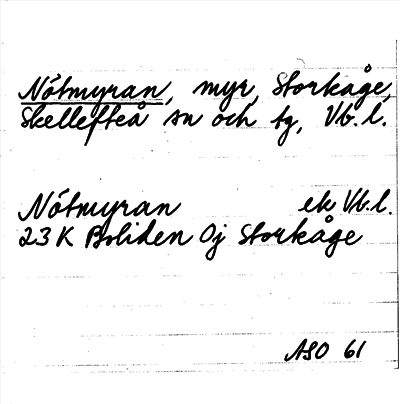 Nötmyran, myr, Storkåge,
Skellefteå sn och tg, Vb. l.
Nötmyran ek Vb. l.
23 K Boliden Oj Storkåge
ASO 61